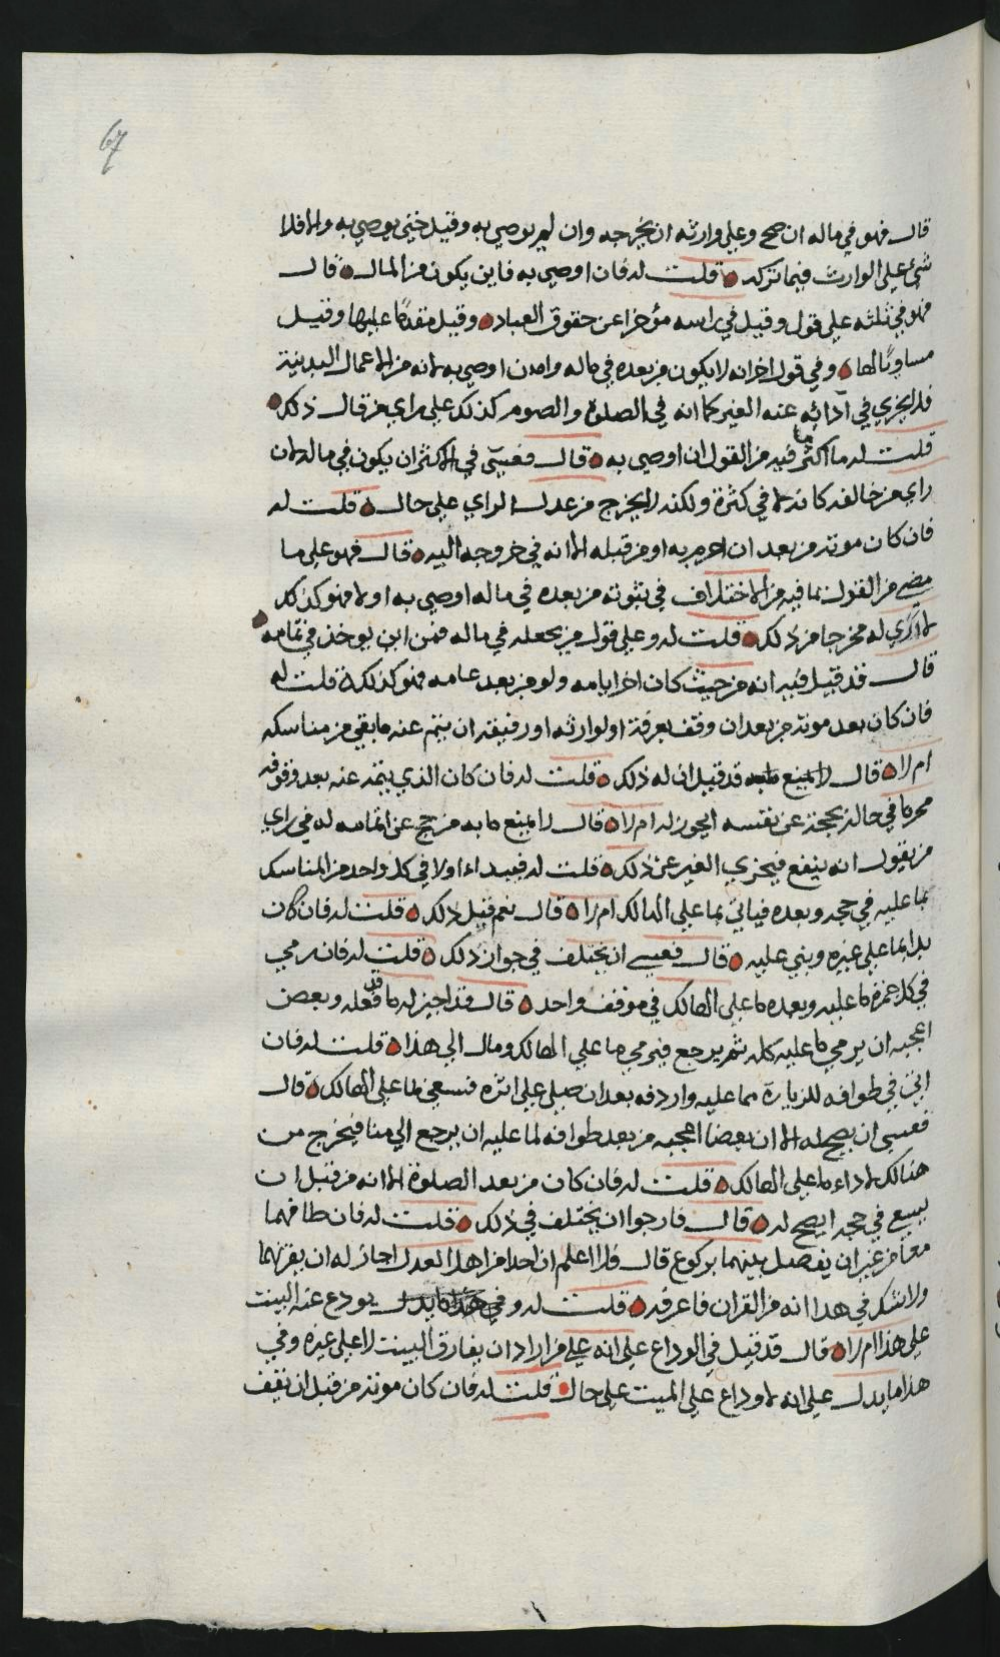 67
قال فهو في ماله ان صح وعلى وارثه ان يخرجه وان لم يوصي به وقيل حتى يوصي به والا فلا
شيء على الوارث فيما تركه قلت له فان اوصى به فاين يكون من المال قال
فهو في ثلثه على قول وقيل في راسه مؤخرا عن حقوق العباد وقيل متقدما عليها وقيل
مساويا لها وفي قول اخر انه لا يكون من بعده في ماله وان اوصى به لانه من الاعمال البدنية
فلا يجزي في ادائه عنه الغير كما انه في الصلوة والصوم كذلك على راي من قال ذلك
قلت له ما اكثر ما فيه من القول ان اوصى به قال فعسى في الاكثر ان يكون في ماله لان
راي من خالفه كانه لا في كثرة ولكنه لا يخرج من عدل الراي على حال قلت له
فان كان موته من بعد ان احرم به او من قبله الا انه في خروجه اليه قال فهو على ما
مضى من القول بما فيه من الاختلاف في ثبوته من بعده في ماله اوصى به اولا فهو كذلك
لا ادري له مخرجا من ذلك قلت له وعلى قول من يجعله في ماله فمن اين يوخذ في تمامه
قال قد قيل فيه انه من حيث كان اخر ايامه ولو من بعد عامه فهو كذلك قلت له
فان كان بعد موته من بعد ان وقف بعرفة اولوارثه او رفيقه ان يتم عنه ما بقي من مناسكه
ام لا قال لا امنع قد قيل ان له ذلك قلت له فان كان الذي يتمه عنه بعد وقوفه
محرما في حاله بحجة عن نفسه ايجوز له ام لا قال لا امنع ما به من حج عن اتمامه له في راي
من يقول انه ينفع فيجزي الغير عن ذلك قلت له فيبداء اولا في كل واحد من المناسك
بما عليه في حجه وبعده فياتي بما على الهالك ام لا قال نعم قيل ذلك قلت له فان كان
بدا بما على غيره وبني عليه قال فعسى ان يختلف في جواز ذلك قلت له فان رمى
في كل جمرة ما عليه وبعده ما على الهالك في موقف واحد قال قد اجيز له ما قد فعله وبعض
اعجبه ان يرمي ما عليه كله ثم يرجع فيرمي ما على الهالك ومال الى هذا قلت له فان
اتى في طوافه للزيارة مما عليه واردفه بعد ان صلى على اثره فسعى لما على الهالك قال
فعسى ان يصح له الا ان بعضا اعجبه من بعد طوافه لما عليه ان يرجع الى منا فيخرج من
هنالك لاداء ما على الهالك قلت له فان كان من بعد الصلوة الا انه من قبل ان
يسع في حجه ايصح له قال فارجوا ان يختلف في ذلك قلت له فان طافهما
معا من غير ان يفصل بينهما بركوع قال فلا اعلم ان احدا من اهل العدل اجاز له ان يقرنهما
ولا شك في هذا انه من القران فاعرفه قلت له وفي يودع عنه البيت
على هذا ام لا قال قد قيل في الوداع على انه على من اراد ان يفارق البيت لا على غيره وفي
هذا ما يدل على انه لا وداع على الميت على حال قلت له فان كان موته من قبل ان يقف